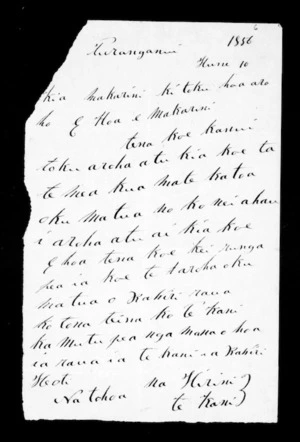 Turanganui 1856
Hune 10
Kia Makarini ki toku hoa aro
ho E Hoa e Makarini
tena koe kanui
toku aroha atu kia koe ta
te mea kua mate katoa
oku matua no ko nei ahau
i aroha atu ai kia koe
E hoa tena koe kei runga
pea ia koe te aroha oku
matua o raua
ko tona teina ko te Kani
ka mutu pea nga mana o hoa
ia raua ia te Kani
Heoti na Hirini
Na to hoa te Kani